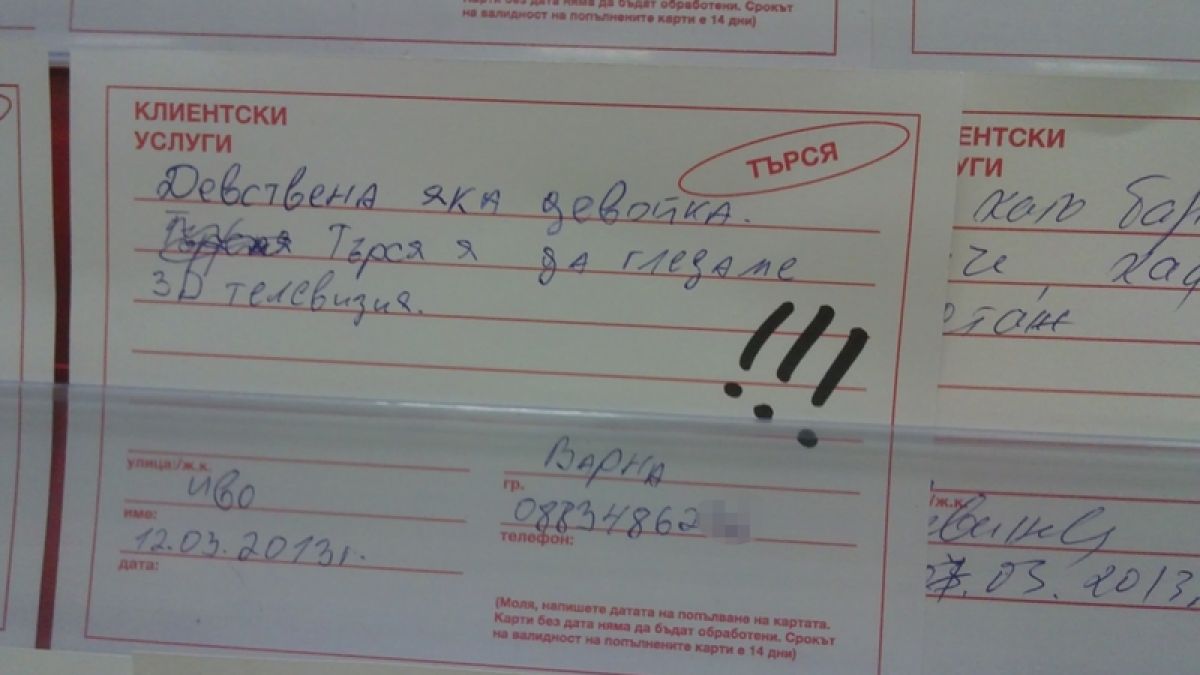 Карти без дата няма да бъдат обработени. Срокът
на валидност на попълнените карти е 14 дни)
КЛИЕНТСКИ
УСЛУГИ
ТЪРСЯ
Девствена яка девойка.
Търся я да гледаме
3D телевизия.
!!!
улица:/ж.к.
Иво
име:
12.03.2013г.
дата:
Варна
гр.
08834862
телефон:
(Моля, напишете датата на попълване на картата.
Карти без дата няма да бъдат обработени. Срокът
на валидност на попълнените карти е 14 дни)
ЕНТСКИ
УГИ
/ж.к.
.03.2013